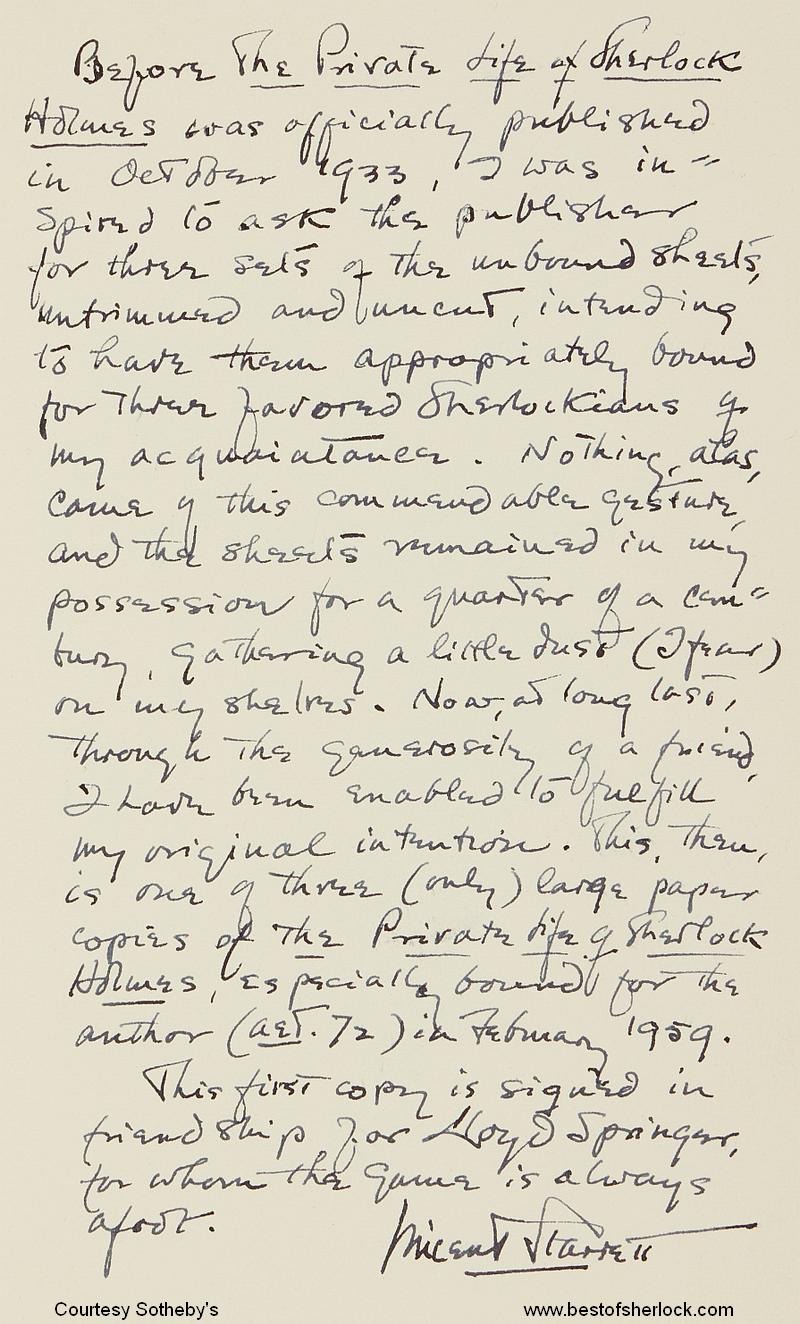 Before The Private Life of Sherlock
Holmes was officially published
in October 1933, I was in-
spired to ask the publisher
for three sets of the unbound sheets,
untrimmed and uncut, intending
to have them appropriately bound
for three favored Sherlockians of
my acquaintance. Nothing, alas,
came of this commendable gesture,
and the sheets remained in my
possession for a quarter of a cen-
tury, gathering a little dust (I fear)
on my shelves. Now, at long last,
through the generosity of a friend,
I have been enabled to fulfill
my original intention. This, then,
is one of three (only) large paper
copies of The Private Life of Sherlock
Holmes, especially bound for the
author (aet. 72) in February 1959.
This first copy is signed in
friendship for Lloyd Springer,
for whom the game is always
afoot.
Vincent Starrett
Courtesy Sotheby's www.bestofsherlock.com